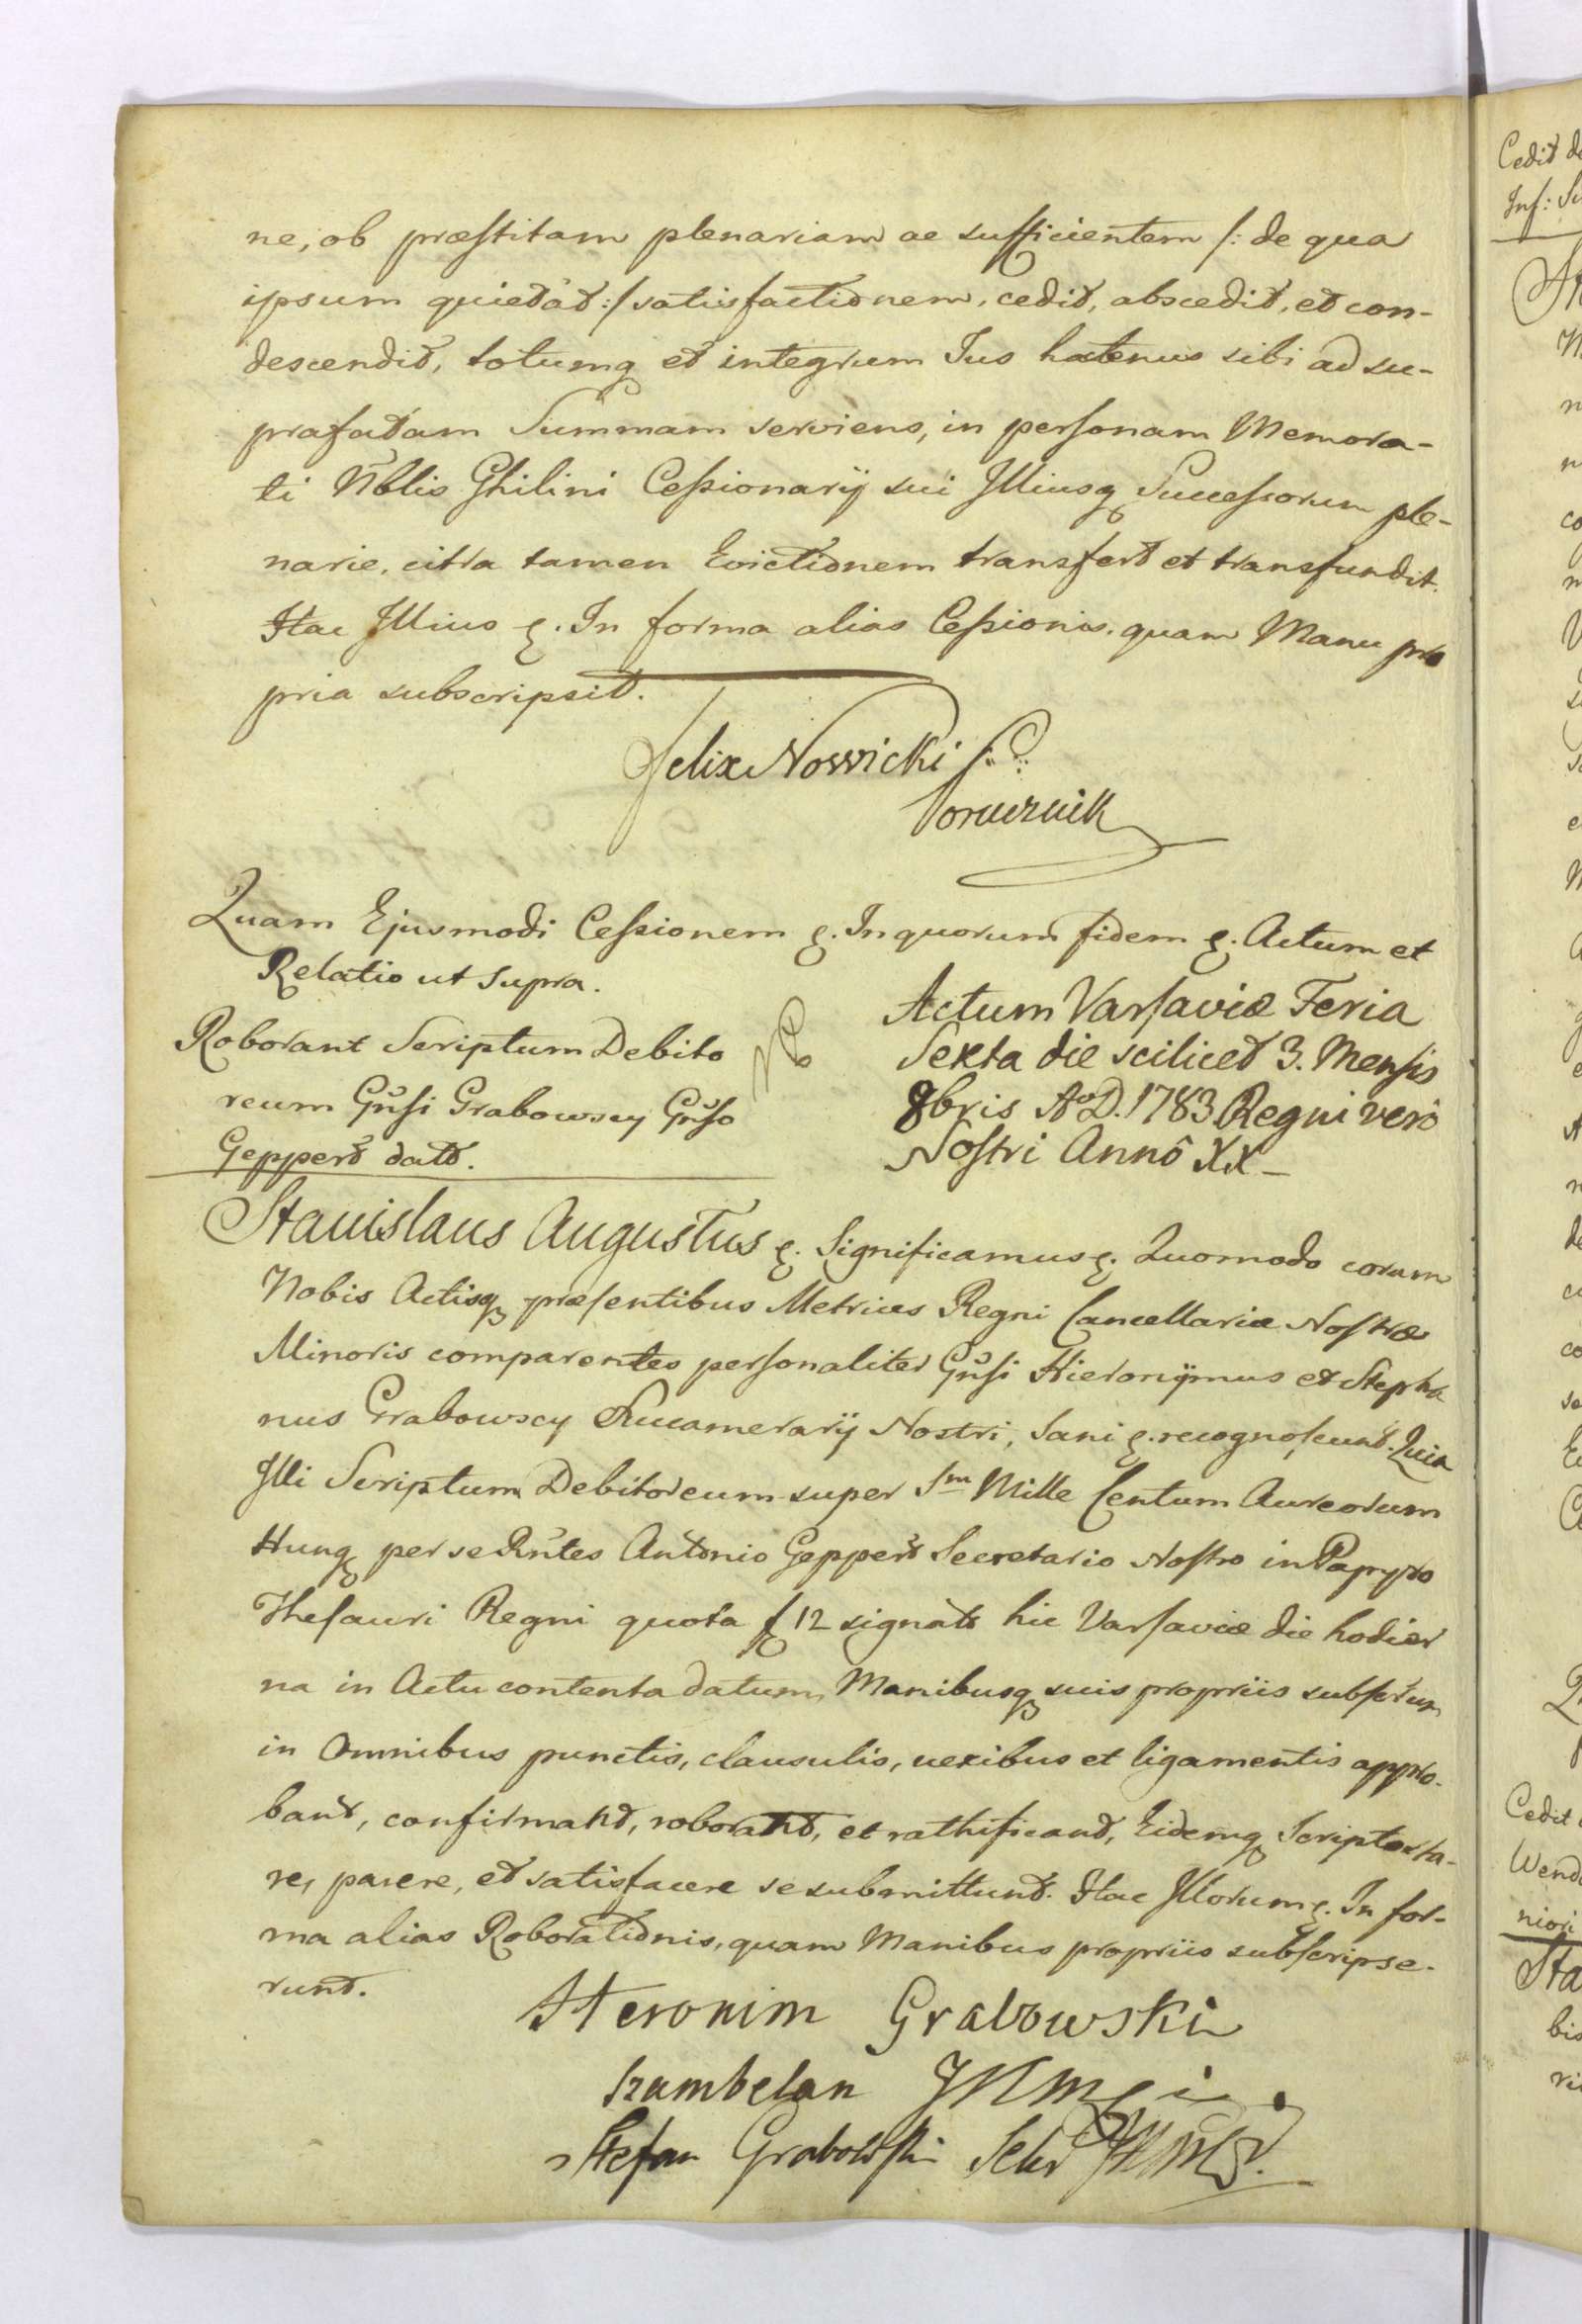 ne, ob præstitam plenariam ac sufficientem /: de qua
ipsum quietat :/ satisfactionem, cedit, abscedit, et con-
descendit, totumq et integrum Jus hactenus sibi ad su-
prafatam Summam serviens, in personam Memora-
ti Nblis Ghilini Cessionarij sui Illiusq Successorum ple-
narie, citra tamen Evictionem transfert et transfundit.
Hac Illius &. In forma alias Cessionis, quam Manu pro
pria subscripsit.
Felix Nowicki
Porucznik
Quam Ejusmodi Cessionem &. In quorum fidem &. Actum et
Relatio ut supra.
Roborant Scriptum Debito
reum Gnsi Grabowscy Gnso
Geppert dato.
Actum Varsaviæ Feria
Sexta die scilicet 3. Mensis
8bris Ao D. 1783 Regni verò
Nostri Annô XX
Stanislaus Augustus &. Significamus &. Quomodo coram
Nobis Actisq præsentibus Metrices Regni Cancellariæ Nostræ
Minoris comparentes personaliter Gnsi Hieronymus et Stepha
nus Grabowscy Succamerarij Nostri, Sani &. recognoscunt. Quia
Illi Scriptum Debitoreum super Sm Mille Centum Aureorum
Hung per se Rntes Antonio Geppert Secretario Nostro in Papyro
Thesauri Regni quota f 12 signato hic Varsaviæ die hodier
na in Actu contenta datum, Manibusq suis propriis subscrtum
in Omnibus punctis, clausulis, nexibus et ligamentis appro-
bant, confirmant, roborant, et rathificant, Eidemq Scripto sta-
re, parere, et satisfacere se submittunt. Hac Illorum &. In for-
ma alias Roborationis, quam Manibus propriis subscripse-
runt.
Heronim Grabowski
szambelan JKMci
Stefan Grabowski Szbr JKMCi.
Cedit
Stæ
Cedit
Wend
niori
Sta
bis